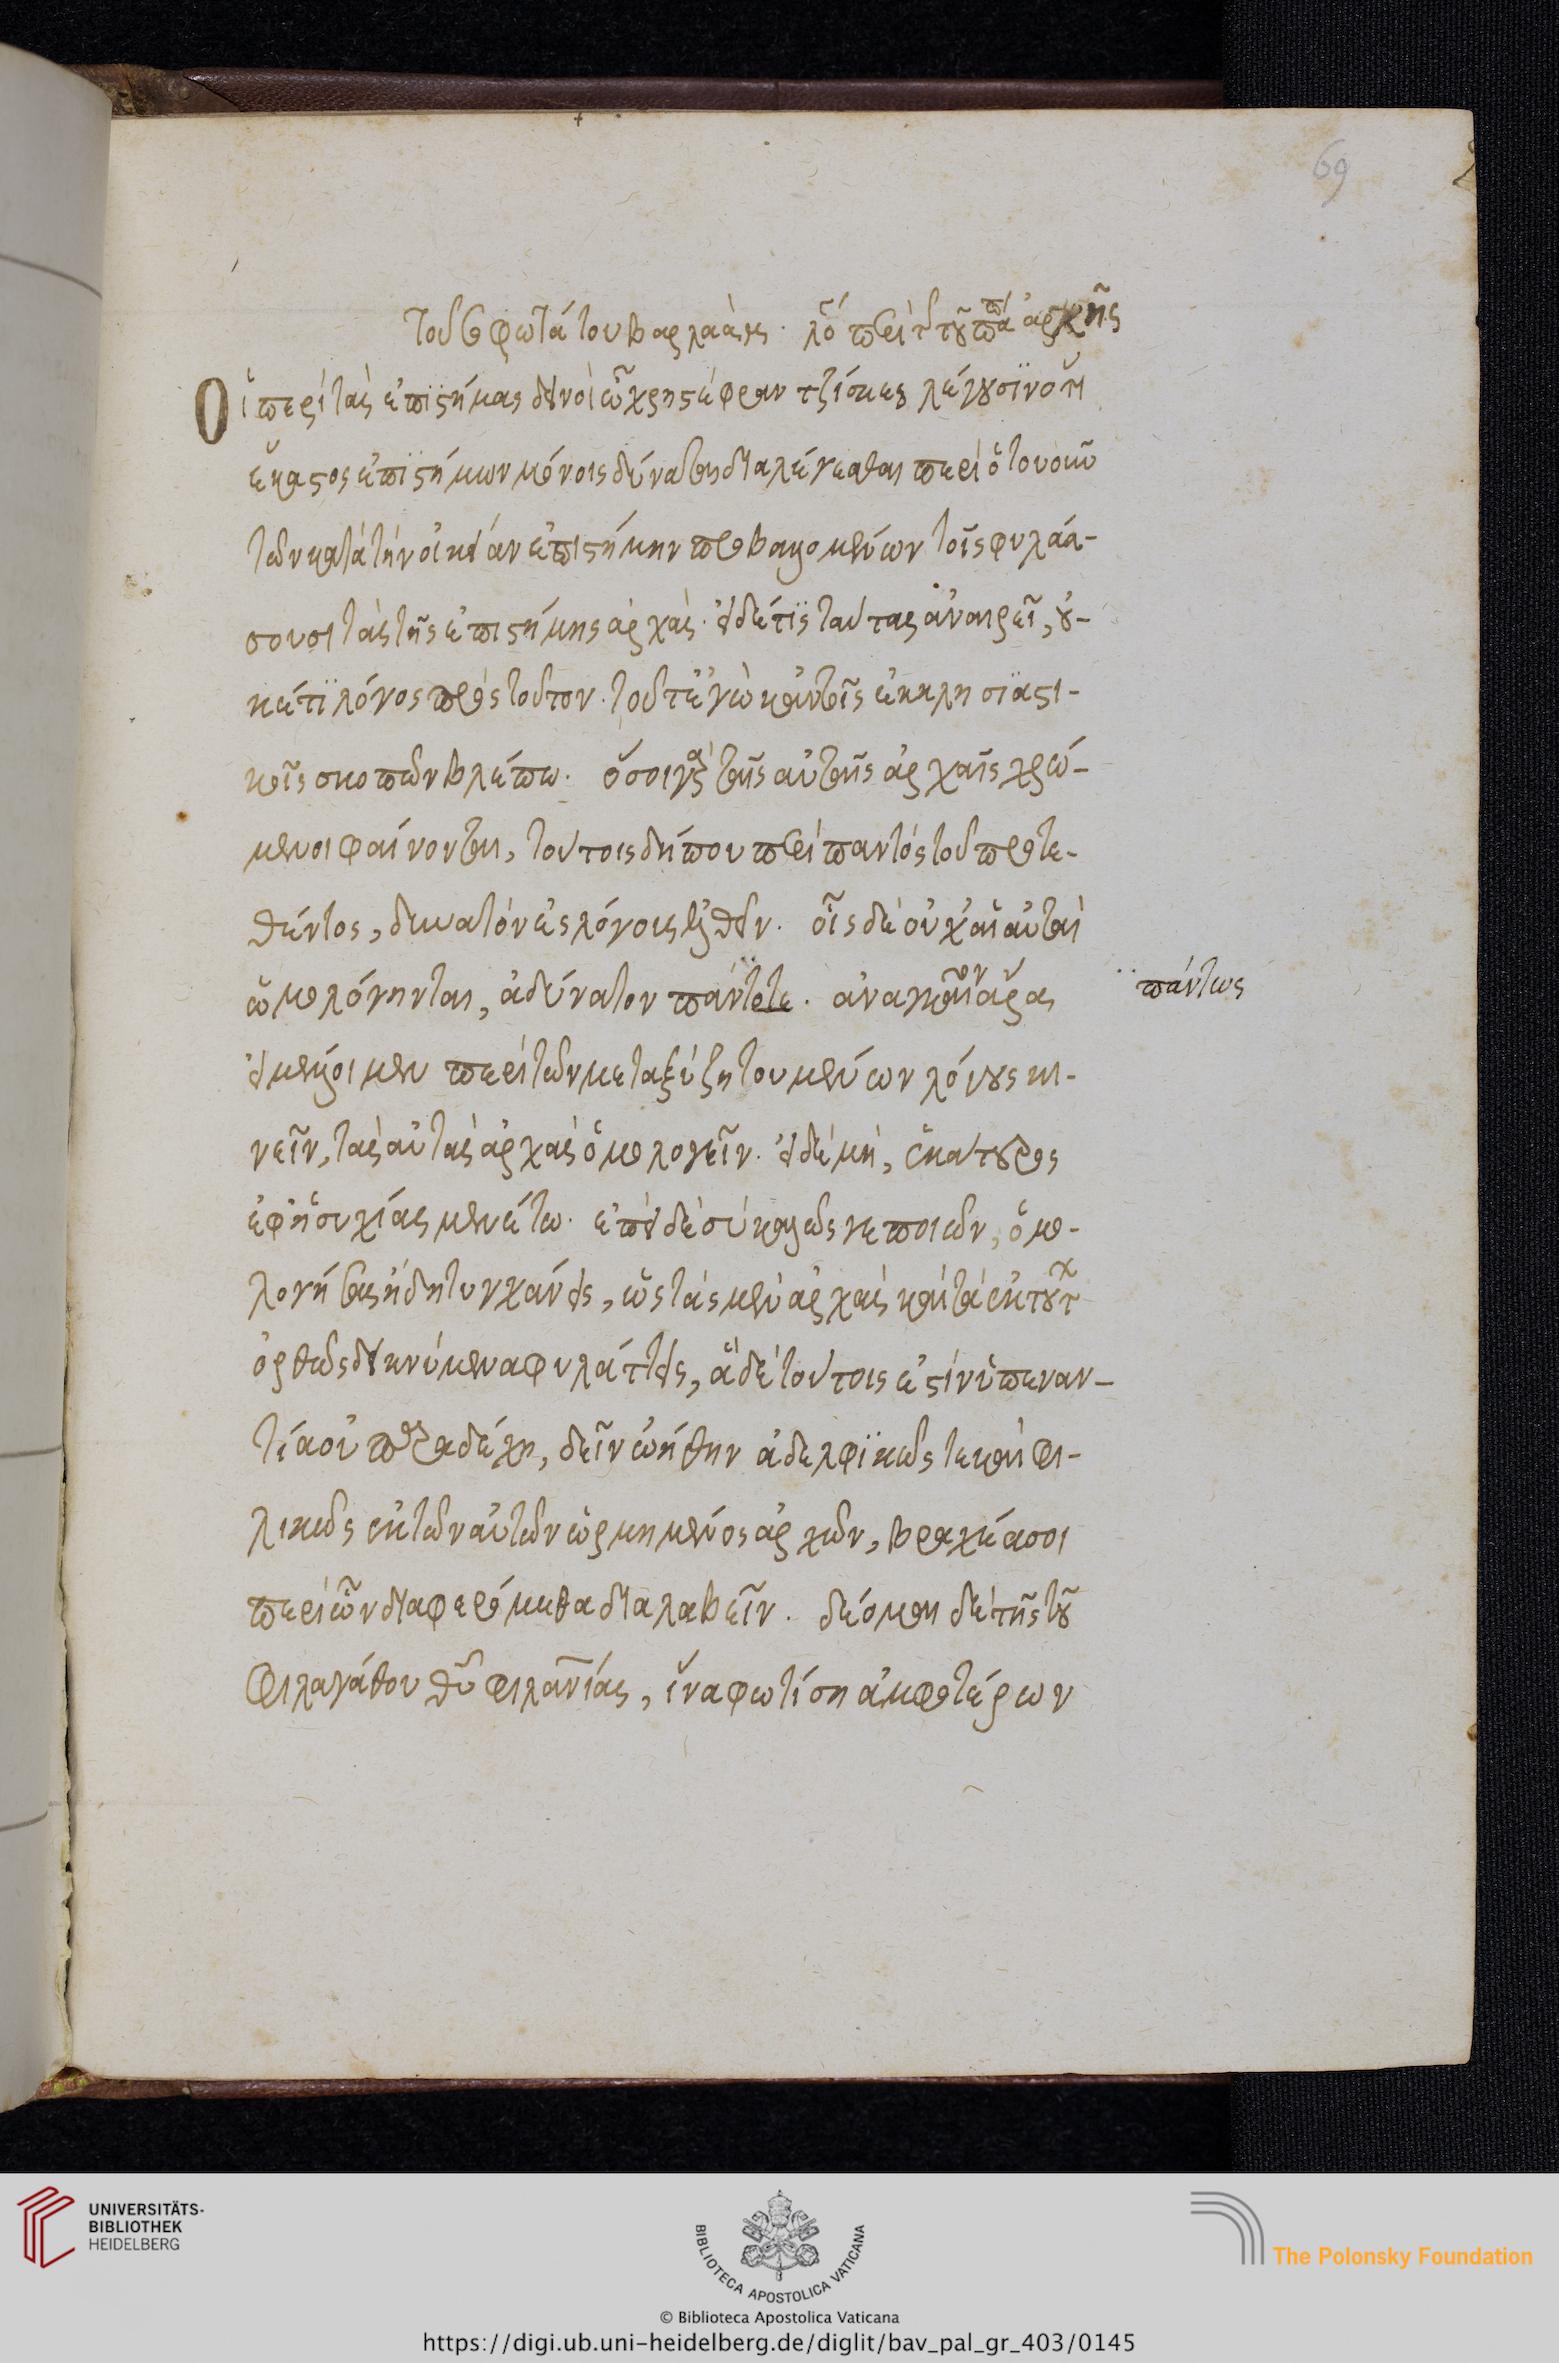 69
Τοῦ σοφωτάτου Βαρλαὰμ· λό περὶ τῆς τοῦ πάπα ἀρχῆς
Οἱ περὶ τὰς ἐπιστήμας δεινοὶ ὦ χρηστὲ φραντζίσκε λέγουσιν ὅτι
ἕκαστος ἐπιστήμων μόνοις δύναται διαλέγεσθαι περὶ ὅτου οὖν
τῶν κατὰ τὴν οἰκείαν ἐπιστήμην προβαλλομένων τοῖς φυλάά-
σουσι τὰς τῆς ἐπιστήμης ἀρχὰς· εἰ δέ τις ταύτας ἀναιρεῖ, οὐ-
κέτι λόγος πρὸς τοῦτον· τοῦτ' ἐγὼ κἂν ταῖς ἐκκλησιαστι-
καῖς σκοπῶν βλέπω· ὅσοι γὰρ ταῖς αὐταῖς ἀρχαῖς χρώ-
μενοι φαίνονται, τούτοις δήπου περὶ παντὸς τοῦ προτε-
θέντος, δυνατὸν εἰς λόγους ἐλθεῖν. οἷς δὲ οὐχ αἱ αὐταὶ
ὡμολόγηνται, ἀδύνατον πάντοτε. ἀναγκαῖον ἄρα
πάντως
εἰ μέλλοιμεν περὶ τῶν μεταξὺ ζητουμένων λόγους κι-
νεῖν, τὰς αὐτὰς ἀρχὰς ὁμολογεῖν. εἰ δὲ μή, ἑκάτερος
ἐφ' ἡσυχίας μενέτω. ἐπεὶ δὲ σὺ καλῶς γε ποιῶν, ὁμο-
λογήσας ἤδη τυγχάνεις, ὡς τὰς μὲν ἀρχὰς καὶ τὰ ἐκ τούτ
ὀρθῶς δεικνύμενα φυλάττεις, ἃ δὲ τούτοις ἐστὶν ὑπεναν-
τία οὐ παραδέχῃ, δεῖν ᾠήθην ἀδελφικῶς τε καὶ φι-
λικῶς ἐκ τῶν αὐτῶν ὡρμημένος ἀρχῶν, βραχέα σοι
περὶ ὧν διαφερόμεθα διαλαβεῖν. δέομαι δὲ τῆς τοῦ
Φιλαγάθου θῦ φιλανίας, ἵνα φωτίσῃ ἀμφοτέρων
UNIVERSITÄTS-
BIBLIOTHEK
HEIDELBERG
BIBLIOTECA APOSTOLICA VATICANA
© Biblioteca Apostolica Vaticana
The Polonsky Foundation
https://digi.ub.uni-heidelberg.de/diglit/bav_pal_gr_403/0145